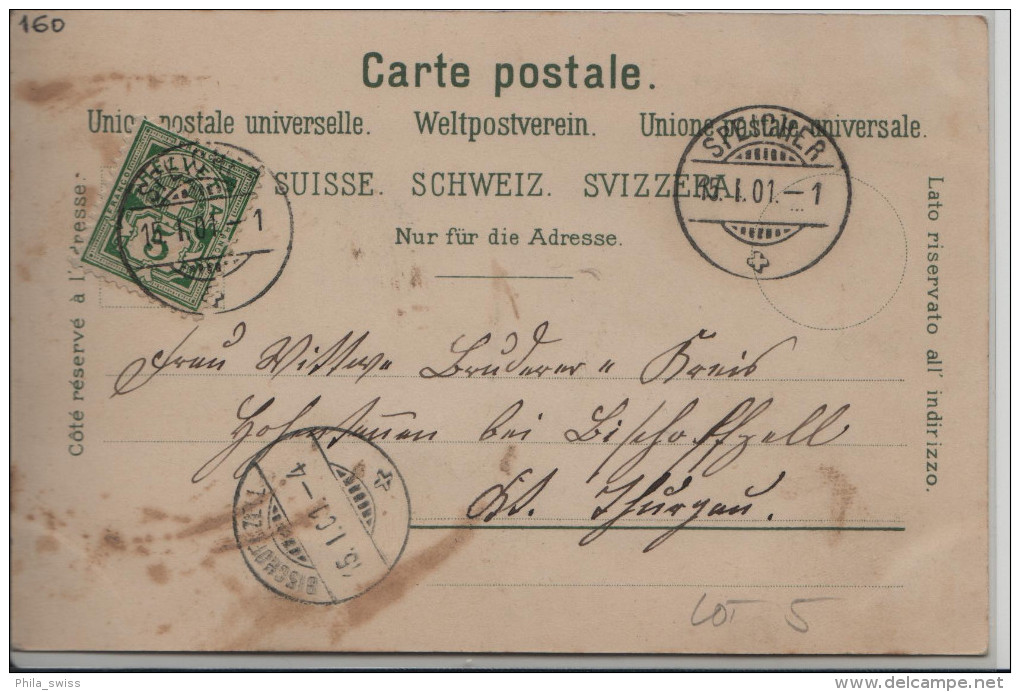 160
Carte postale.
Union postale universelle. Weltpostverein. Unione postale universale.
SUISSE. SCHWEIZ. SVIZZERA.
Nur für die Adresse.
Côté réservé à l'adresse.
Lato riservato all' indirizzo.
FRANCO
HELVETIA
5
15. I. 01.–1
SPEICHER
15. I. 01.–1
Frau Wittwe Bruderer-Kreis
bei Bischoffzell
Kt. Thurgau.
BISCHOFSZELL
15. I. 01–4
LOT 5
Phila_swiss
delcampe.net